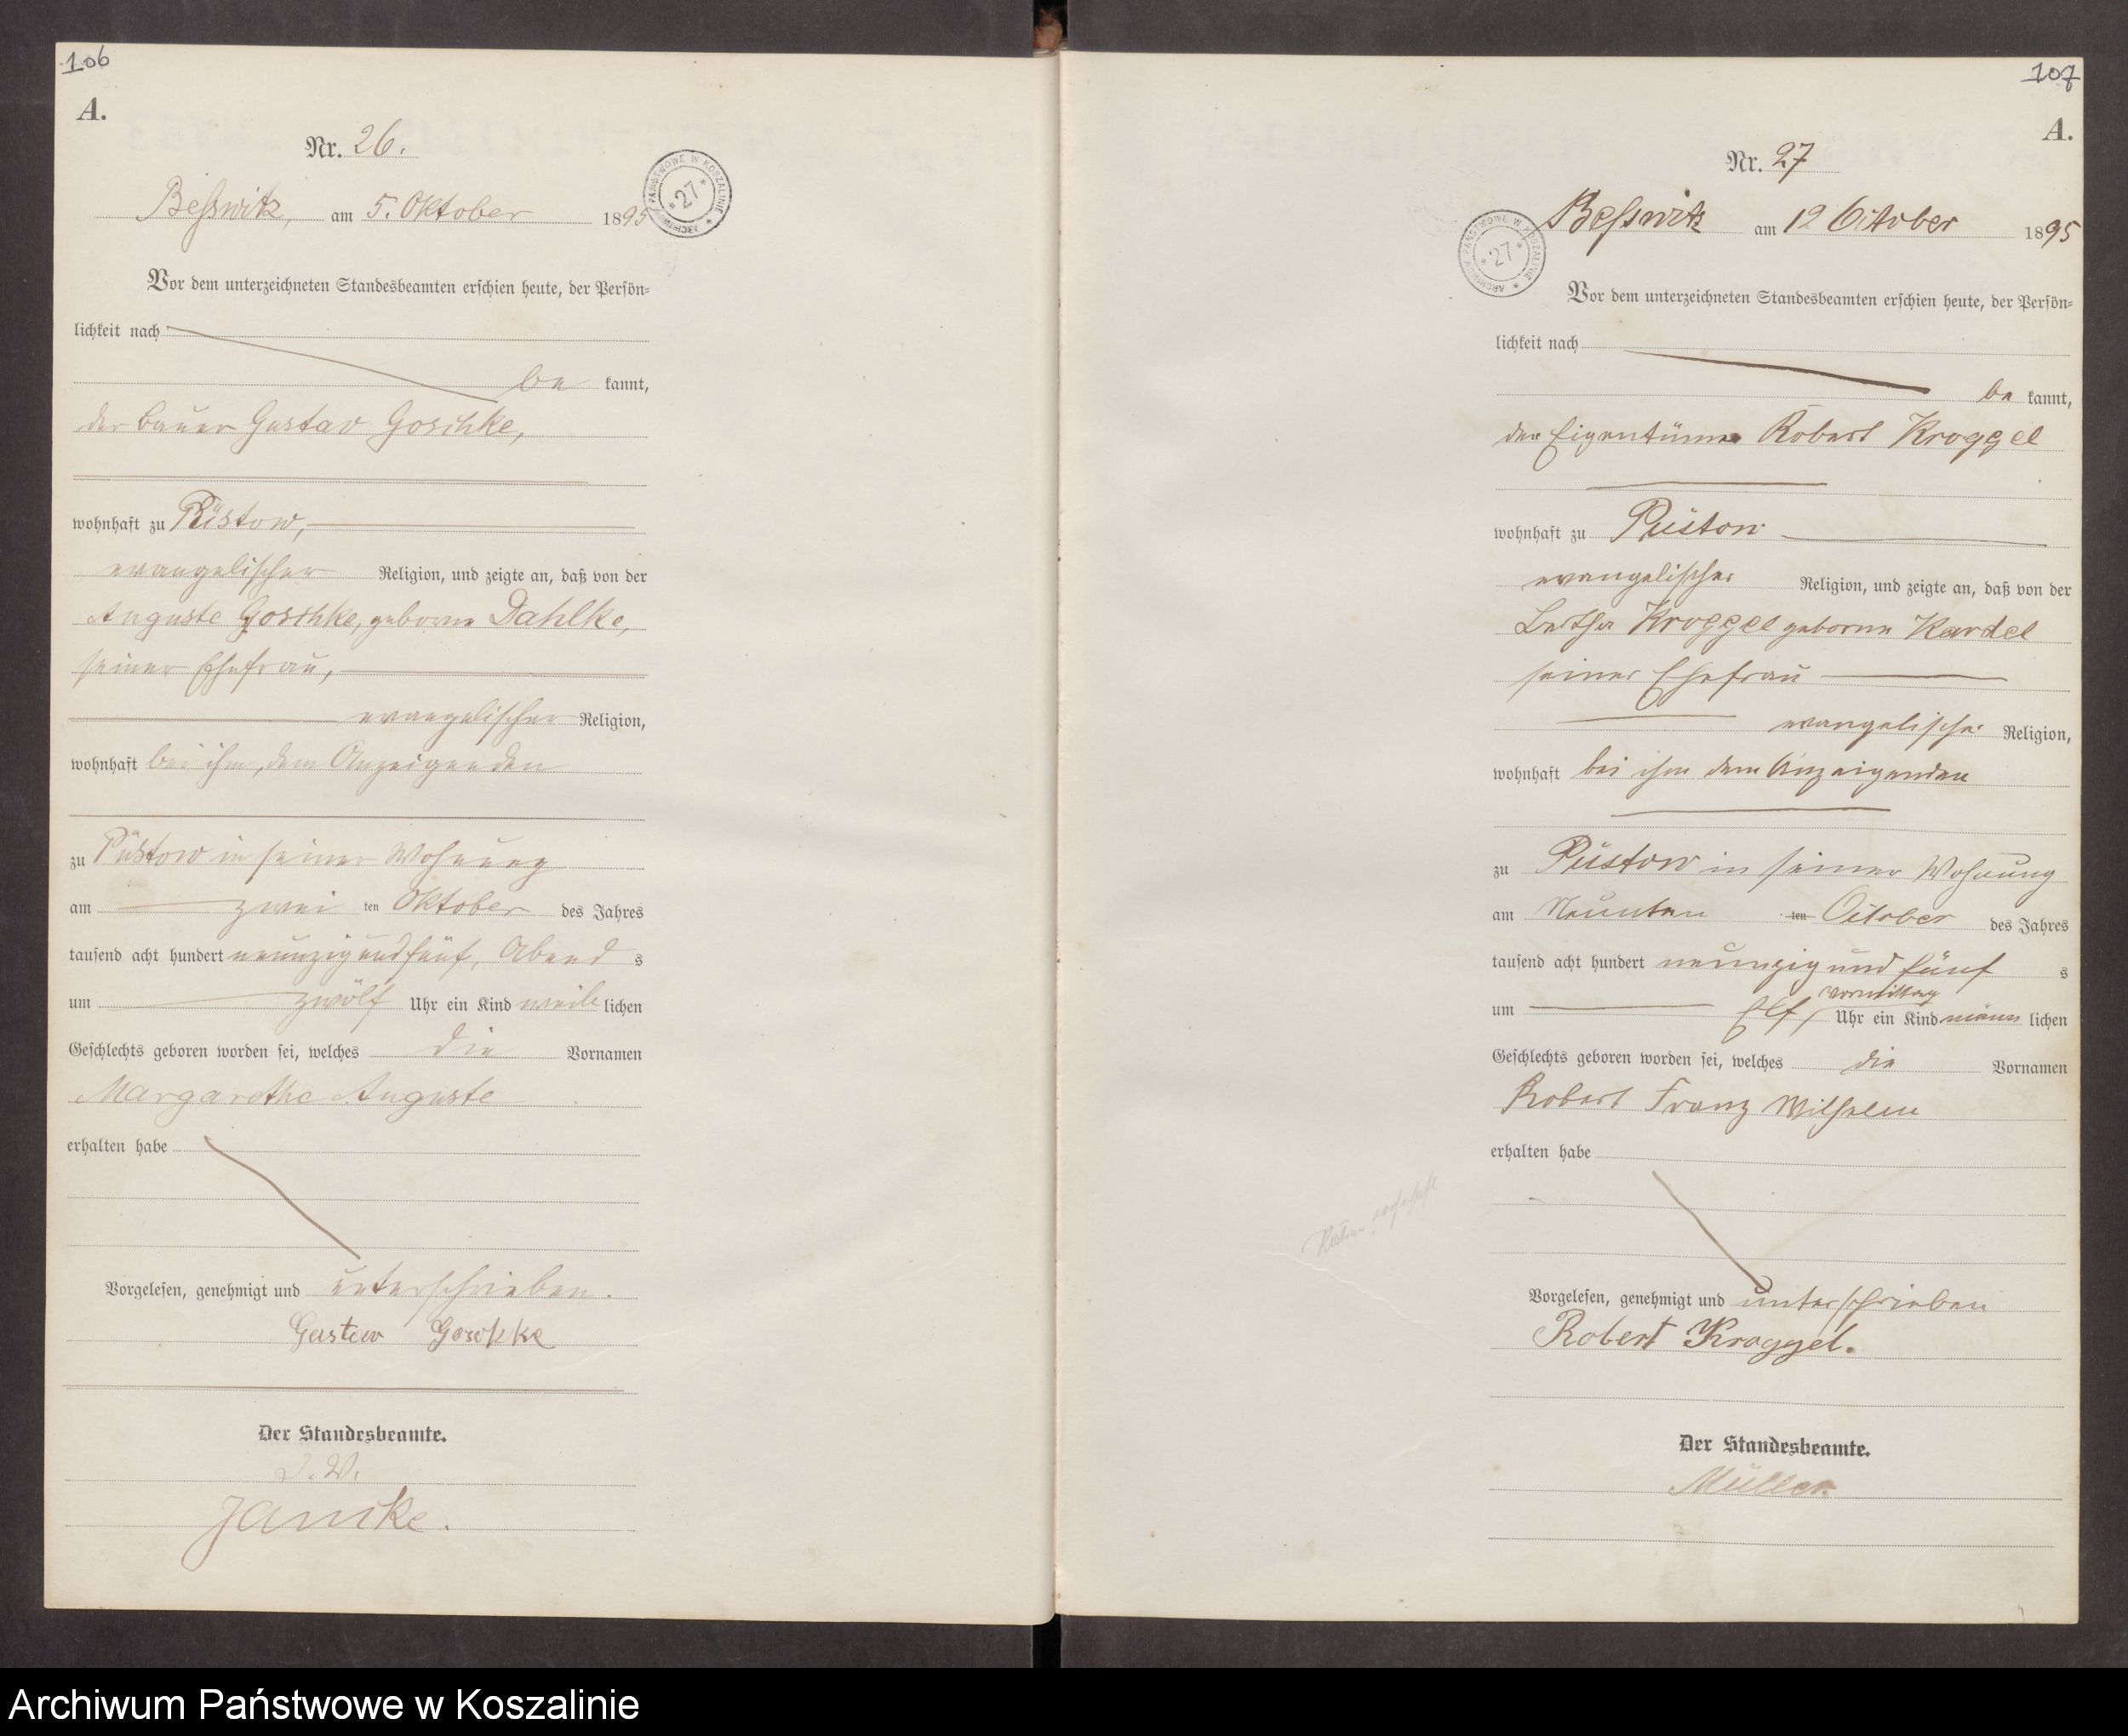 106
A.
Nr. 26.
Beßwitz, am 5. Oktober 1895
ARCHIWUM PAŃSTWOWE W KOSZALINIE * 27 *
Vor dem unterzeichneten Standesbeamten erschien heute, der Persön-
lichkeit nach
be kannt,
der Bauer Gustav Goschke,
wohnhaft zu Püstow,
evangelischer Religion, und zeigte an, daß von der
Auguste Goschke, geborne Dahlke,
seiner Ehefrau,
evangelischer Religion,
wohnhaft bei ihm, dem Anzeigenden
zu Püstow in seiner Wohnung
am zwei ten Oktober des Jahres
tausend acht hundert neunzig und fünf, Abend s
um zwölf Uhr ein Kind weib lichen
Geschlechts geboren worden sei, welches die Vornamen
Margarethe Auguste
erhalten habe
Vorgelesen, genehmigt und unterschrieben.
Gustav Goschke
Der Standesbeamte.
J. V.
Janike.
107
A.
Nr. 27
Beßwitz am 12 October 1895
ARCHIWUM PAŃSTWOWE W KOSZALINIE * 27 *
Vor dem unterzeichneten Standesbeamten erschien heute, der Persön-
lichkeit nach
be kannt,
der Eigentümer Robert Kroggel
wohnhaft zu Püstow
evangelischer Religion, und zeigte an, daß von der
Kroggel geborne Kardel
seiner Ehefrau
evangelischer Religion,
wohnhaft bei ihm dem Anzeigenden
zu Püstow in seiner Wohnung
am Neunten ten October des Jahres
tausend acht hundert neunzig und fünf s
vormittag
um Elf, Uhr ein Kind männ lichen
Geschlechts geboren worden sei, welches die Vornamen
Robert Franz Wilhelm
erhalten habe
Vorgelesen, genehmigt und unterschrieben
Robert Kroggel.
Der Standesbeamte.
Müller
Archiwum Państwowe w Koszalinie